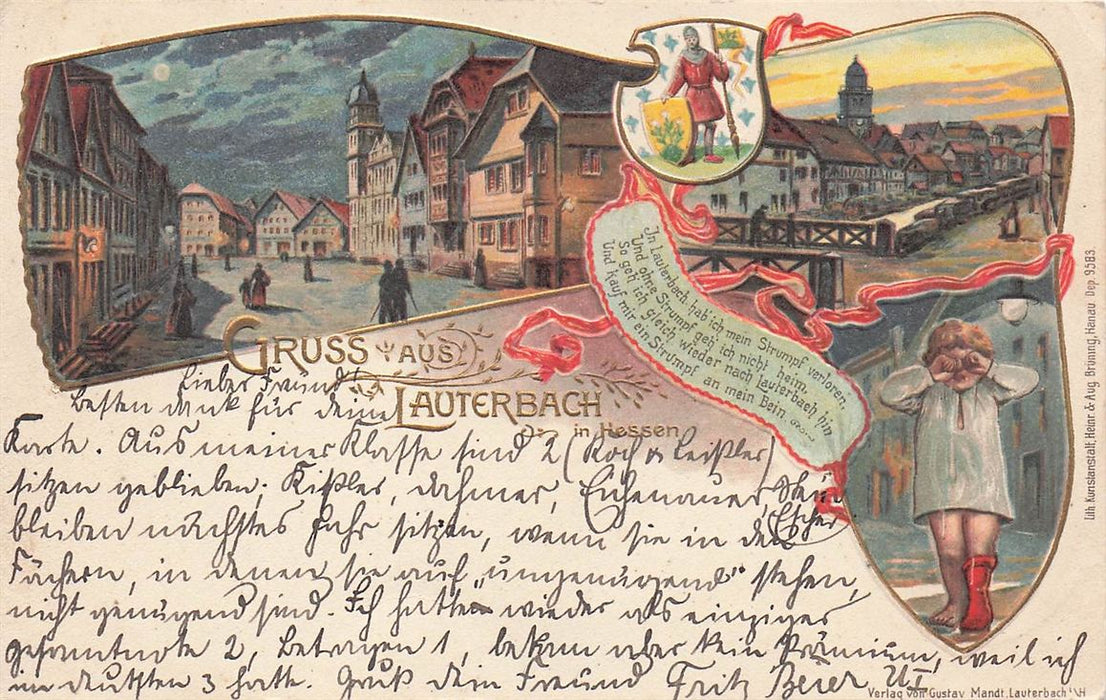 GRUSS AUS
LAUTERBACH
in Hessen
In Lauterbach hab' ich mein Strumpf verloren,
Und ohne Strumpf geh' ich nicht heim.
So geh' ich gleich wieder nach Lauterbach hin
Und kauf mir ein Strumpf an mein Bein.
Lieber Freund!
Besten Dank für deine
Karte. Aus meiner Klasse sind 2 (Koch & Leißler)
sitzen geblieben; Kißler, Dahmer, Eichenauer,
bleiben nächstes Jahr sitzen, wenn sie in den (Escher)
Fächern, in denen sie auf „ungenügend" stehen,
nicht genügend sind. Ich hatte wieder als einziger
Gesamtnote 2, Betragen 1, bekam aber kein Prämium, weil ich
im deutschen 3 hatte. Gruß dein Freund Fritz Beier
Lith. Kunstanstalt, Heinr. & Aug. Brüning, Hanau Dep. 9583.
Verlag von Gustav Mandt, Lauterbach i/H